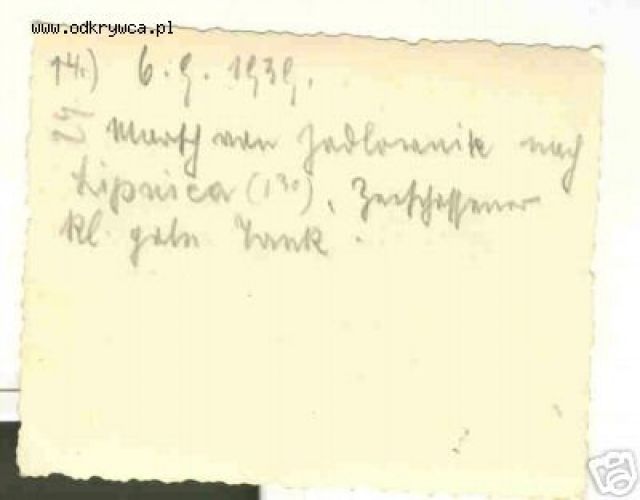 www.odkrywca.pl
14.) 6.9.1939.
24 Marsch von Jodlownik nach
Lipnica (130). Zerschossener
kl. poln Tank.